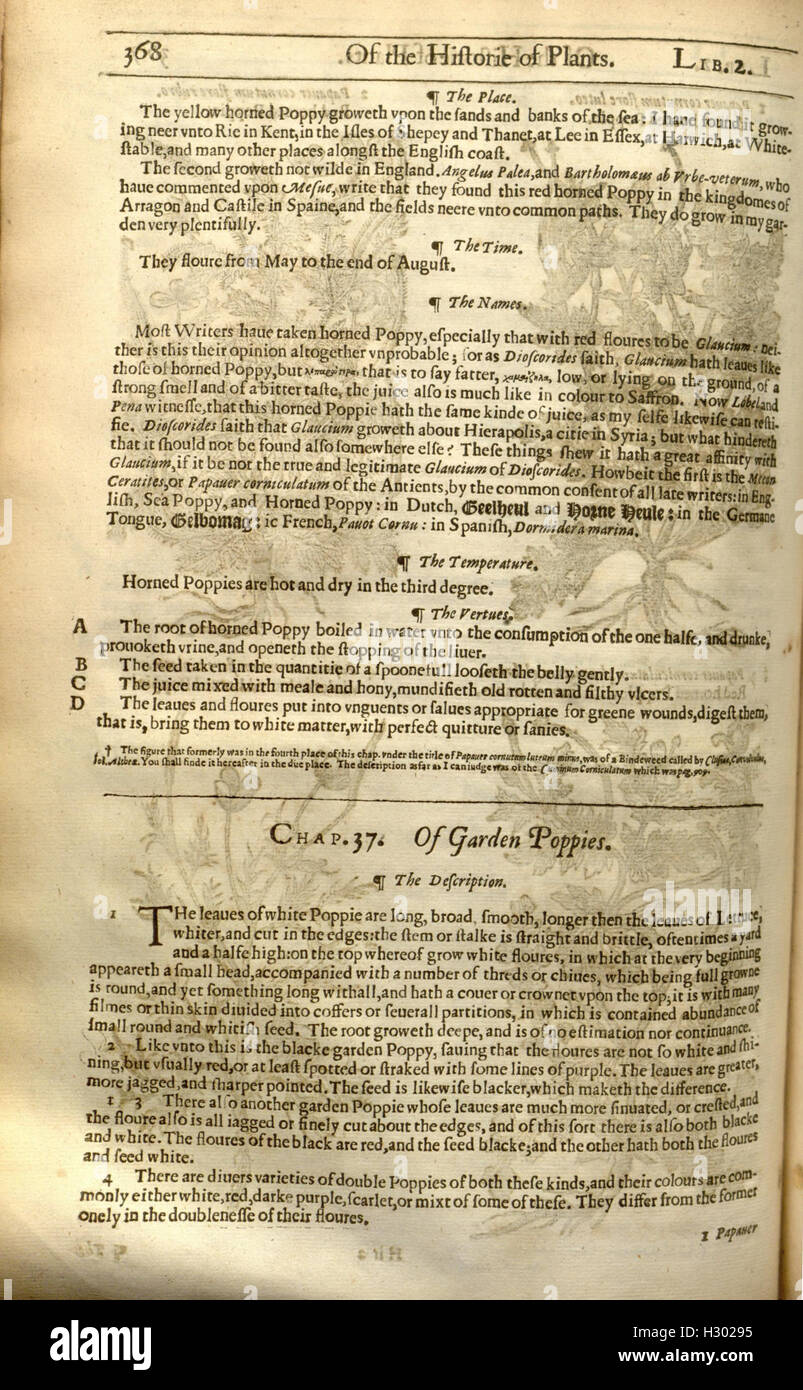 368 Of the Hiſtorie of Plants. LIB. 2.
¶ The Place.
The yellow horned Poppy groweth vpon the ſands and banks of the ſea: I haue found it grow-
ing neer vnto Rie in Kent, in the Iſles of Shepey and Thanet, at Lee in Eſſex, at Harwich, at White-
ſtable, and many other places alongſt the Engliſh coaſt.
The ſecond groweth not wilde in England. Angelus Palea, and Bartholomæus ab Vrbe-veterum, who
haue commented vpon Meſue, write that they found this red horned Poppy in the kingdomes of
Arragon and Caſtile in Spaine, and the fields neere vnto common paths. They do grow in my gar-
den very plentifully.
¶ The Time.
They floure from May to the end of Auguſt.
¶ The Names.
Moſt Writers haue taken horned Poppy, eſpecially that with red floures to be Glaucium: nei-
ther is this their opinion altogether vnprobable; for as Dioſcorides ſaith, Glaucium hath leaues like
thoſe of horned Poppy, but that is to ſay fatter, low, or lying on the ground, of a
ſtrong ſmell and of a bitter taſte, the juice alſo is much like in colour to Saffron. Now Lobel and
Pena witneſſe, that this horned Poppie hath the ſame kinde of juice, as my ſelfe likewiſe can teſti-
fie. Dioſcorides ſaith that Glaucium groweth about Hierapolis, a citie in Syria; but what hindereth
that it ſhould not be found alſo ſomewhere elſe? Theſe things ſhew it hath a great affinity with
Glaucium, if it be not the true and legitimate Glaucium of Dioſcorides. Howbeit the firſt is the Mecon
Ceratites, or Papauer corniculatum of the Antients, by the common conſent of all late writers: in Eng-
liſh, Sea Poppy, and Horned Poppy: in Dutch, Geelheul and Horne Heule: in the Germane
Tongue, Gelbomag: ic French, Pauot Cornu: in Spaniſh, Dormidera marina.
¶ The Temperature.
Horned Poppies are hot and dry in the third degree.
¶ The Vertues.
A The root of horned Poppy boiled in water vnto the conſumption of the one halfe, and drunke,
prouoketh vrine, and openeth the ſtopping of the liuer.
B The ſeed taken in the quantitie of a ſpoonefull looſeth the belly gently.
C The juice mixed with meale and hony, mundifieth old rotten and filthy vlcers.
D The leaues and floures put into vnguents or ſalues appropriate for greene wounds, digeſt them,
that is, bring them to white matter, with perfect quitture or ſanies.
† The figure that formerly was in the fourth place of this chap. vnder the title of Papauer cornutum luteum minus, was of a Bindeweed called by Cluſius, Conuoluulus,
fol. Altheæ. You ſhall finde it hereafter in the due place. The deſcription as far as I can iudge was of the Corniculatum which was pag.
CHAP. 37. Of Garden Poppies.
¶ The Deſcription.
1 THe leaues of white Poppie are long, broad, ſmooth, longer then the leaues of Lettuce,
whiter, and cut in the edges: the ſtem or ſtalke is ſtraight and brittle, oftentimes a yard
and a halfe high: on the top whereof grow white floures, in which at the very beginning
appeareth a ſmall head, accompanied with a number of threds or chiues, which being full growne
is round, and yet ſomething long withall, and hath a couer or crownet vpon the top; it is with many
filmes or thin skin diuided into coffers or ſeuerall partitions, in which is contained abundance of
ſmall round and whitiſh ſeed. The root groweth deepe, and is of no eſtimation nor continuance.
2 Like vnto this is the blacke garden Poppy, ſauing that the floures are not ſo white and ſhi-
ning, but vſually red, or at leaſt ſpotted or ſtraked with ſome lines of purple. The leaues are greater,
more jagged, and ſharper pointed. The ſeed is likewiſe blacker, which maketh the difference.
‡ 3 There alſo another garden Poppie whoſe leaues are much more ſinuated, or creſted, and
the floure alſo is all iagged or finely cut about the edges, and of this ſort there is alſo both blacke
and white. The floures of the black are red, and the ſeed blacke; and the other hath both the floures
and ſeed white.
4 There are diuers varieties of double Poppies of both theſe kinds, and their colours are com-
monly either white, red, darke purple, ſcarlet, or mixt of ſome of theſe. They differ from the former
onely in the doubleneſſe of their floures.
1 Papauer
alamy
Image ID: H30295
www.alamy.com